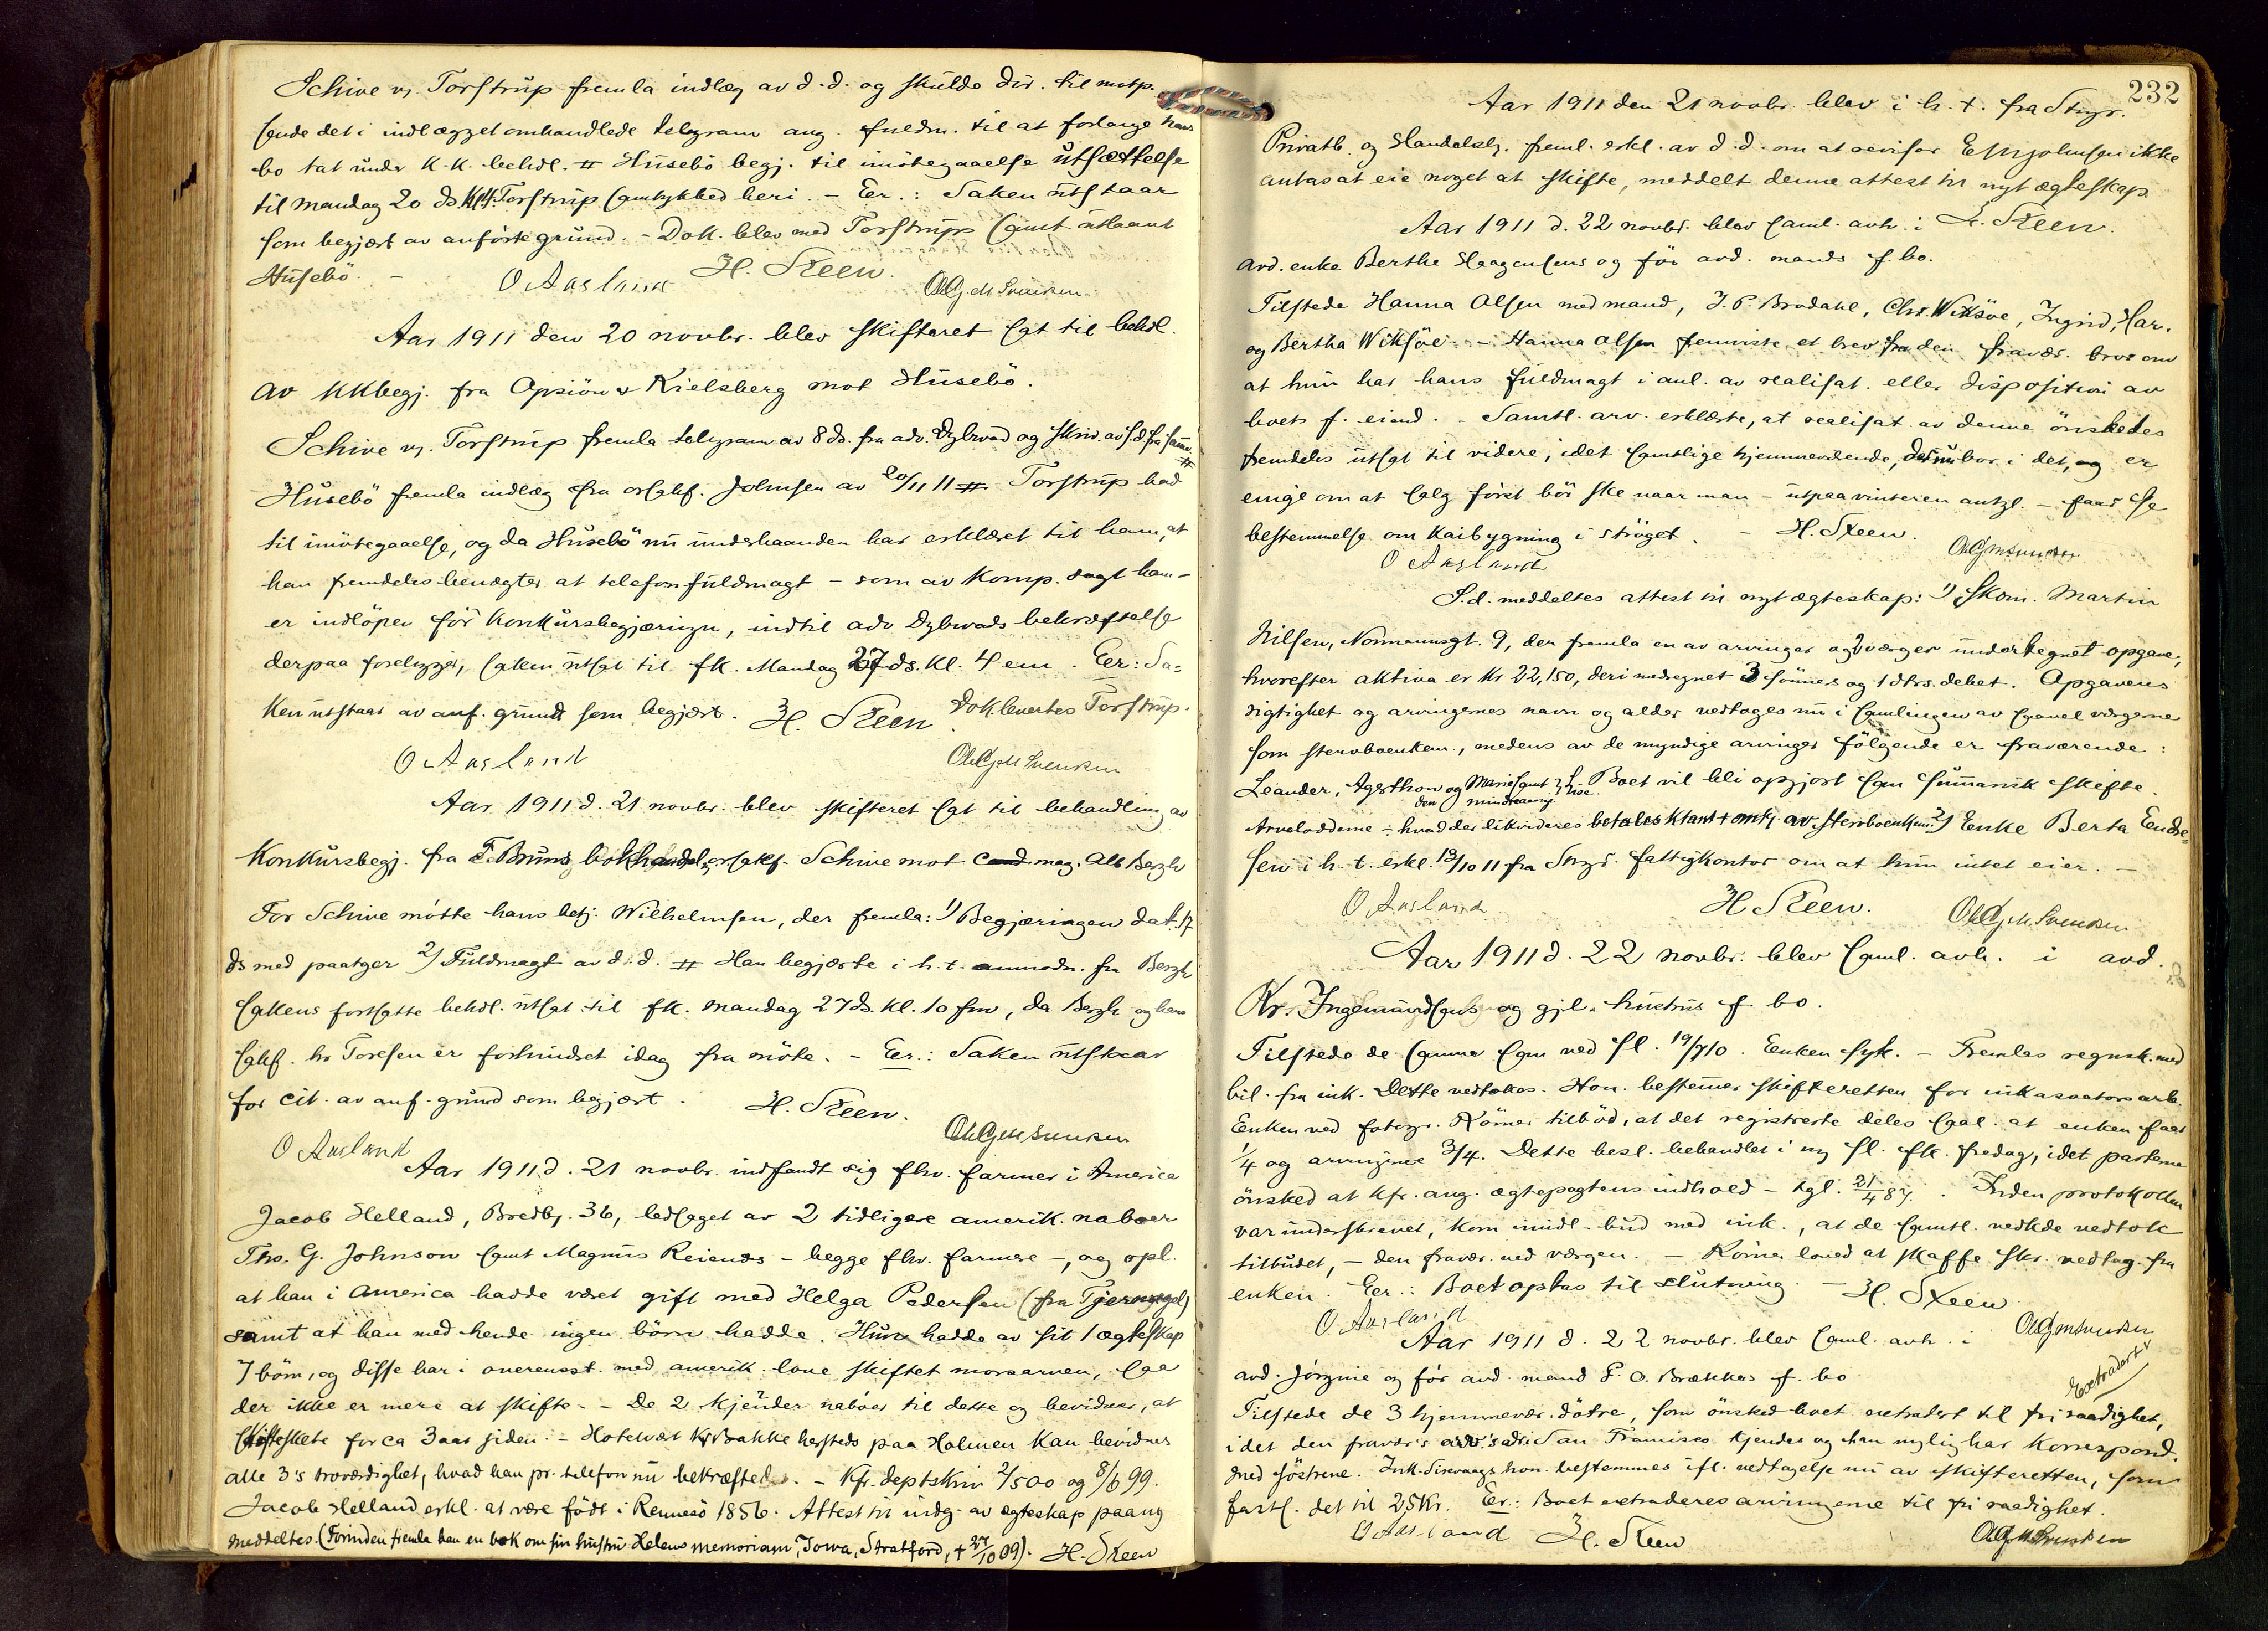 Schive v. Torstrup fremla indlæg av d.d. og skulde dir. til motp.
sende det i indlægget omhandlede telegram ang. fuldm. til at forlange hans
bo tat under K.K. behdl. # Husebö begj. til imötegaaelse utsættelse
til mandag 20 ds Kl 4. Torstrup samtykked heri. - Eer.: Saken utstaar
som begjært av anförte grund. - Dok. blev med Torstrups samt. utlaant
Husebö. -
O Ausland H. Steen.
Aar 1911 den 20 novbr. blev skifteret sat til behdl.
av KKbegj. fra Opsiön & Kielsberg mot Husebö.
Schive v. Torstrup fremla telegram av 8 ds. fra adv. Dybwad og skriv. av s.d. fra samme #
Husebö fremla indlæg fra orsakf. Johnsen av 20/11 11 # Torstrup bad
til imötegaaelse, og da Husebö nu underhaanden har erklæret til ham, at
han fremdeles benægter at telefonfuldmagt - som av Komp. sagt ham -
er indlöpen för Konkursbegjæringen, indtil adv Dybwads bekræftelse
derpaa foreligger, saken utsat til fk. Mandag 27 ds. Kl. 4 em. Eer: Sa=
ken utstaar av anf. grund som begjært. H. Steen. Dok. levertes Torstrup.
O Ausland
Aar 1911 d. 21 novbr. blev skifteret sat til behandling av
Konkursbegj. fra F. Bruns bokhandel, orsakf. Schive mot cand. mag. Alb Bergh
For Schive mötte hans betj. Wilhelmsen, der fremla: 1) Begjæringen dat. 17
ds med paategn 2) Fuldmagt av d.d. # Han begjærte i h.t. anmodn. fra Bergh
sakens fortsatte behdl. utsat til fk. mandag 27 ds. kl. 10 fm, da Bergh og hans
sakf. hr Toresen er forhindret idag fra möte. - Eer.: Saken utstaar
for cit. av anf. grund som begjært. H. Steen.
O Ausland
Aar 1911 d. 21 novbr. indfandt sig fhv. farmer i America
Jacob Helland, Bredbg. 36, ledsaget av 2 tidligere amerik. naboer
Tho. G. Johnson samt Magnus Reienæs - begge fhv. farmere -, og opl.
at han i America hadde været gift med Helga Pedersen (fra Tjernagel)
samt at han med hende ingen börn hadde. Hun hadde av sit 1 ægteskap
7 börn, og disse har i overensst. med amerik. love skiftet morsarven, saa
der ikke er mere at skifte. - De 2 kjender naboer til dette og bevidner, at
skifte skete for ca 3 aar siden. - Hotelvært Kr Bakke hersteds paa Holmen kan bevidne
alle 3's troværdighet, hvad han pr. telefon nu bekræfted. - Kfr. deptskriv 2/5 00 og 8/6 99.
Jacob Helland erkl. at være födt i Rennesö 1856. Attest til indg. av ægteskap paany
meddeltes. (Forinden fremla han en bok om sin hustru Helens memoriam, Iowa, Stratford, † 27/10 09). H. Steen
232
Aar 1911 den 21 novbr. blev i h.t. fra Stvgr.
Privatb. og Handelsb. freml. erkl. av d.d. om at revisor E Mjohnsen ikke
antas at eie noget at skifte, meddelt denne attest til nyt ægteskap.
Aar 1911 d. 22 novbr. blev saml. avh. i H. Steen.
avd. enke Berthe Haagensens og för avd. mands f. bo.
Tilstede Hanna Olsen med mand, J. P. Brodahl, Chr. Wiksöe, Ingrid, Har.
og Bertha Wiksöe. - Hanna Olsen fremviste et brev fra den fravær. bror om
at hun har hans fuldmagt i anl. av realisat. eller disposition av
boets f. eiend. - Samtl. arv. erklærte, at realisat. av denne önskedes
fremdeles utsat til videre, idet samtlige hjemmeværende, der nu bor i det, og er
enige om at salg först bör ske naar man - utpaa vinteren antgl. - faar se
bestemmelse om kaibygning i ströget. - H. Steen.
O Ausland
S.d. meddeltes attest til nyt ægteskap: 1) skom. Martin
Nilsen, Normannsgt. 9, der fremla en av arvinger og værger undertegnet opgave,
hvorefter aktiva er kr 22,150, deri medregnet 3 sönners og 1 dtrs. debet. Opgavens
rigtighet og arvingenes navn og alder vedtoges nu i samlingen av saavel værgerne
som stervboenken., medens av de myndige arvinger fölgende er fraværende:
Leander, Agerthow og Marie samt Lise. Boet vil bli opgjort som summarisk skifte.
den mindreaarige
Arveloddene ÷ hvad der likvideres betales ktant + omk. av stervboenkem. 2) Enke Berta Endre=
sen i h.t. erkl. 13/10 11 fra Stvgr. fattigkontor om at hun intet eier. -
O Ausland H Steen.
Aar 1911 d. 22 novbr. blev saml. avh. i avd.
Kr. Ingemundsens og gjl. hustrus f. bo.
Tilstede de samme som ved sl. 19/7 10. Enken syk. - Fremlas regnsk. med
bil. fra ink. Dette vedtokes. Hon. bestemmer skifteretten for inkassators arb.
Enken ved fotogr. Römer tilböd, at det registrerte deles saal. at enken faar
1/4 og arvingene 3/4. Dette besl. behandlet i ny sl. fk. fredag, idet parterne
önsked at kfr. ang. ægtepagtens indhold - tgl. 21/4 87. Inden protokollen
var underskrevet, kom imidl. bud med ink., at de samtl. vedkde vedtok
tilbudet, - den fravær. ved værgen. - Römer loved at skaffe skr. vedtag. fra
enken. Eer.: Boet optas til slutning. - H. Steen
O Ausland
Aar 1911 d. 22 novbr. blev saml. avh. i
avd. Jörgine og för avd. mand P. O. Brækkes f. bo
Extradert
Tilstede de 3 hjemmevær. dötre, som önsked boet extradert til fri raadighet,
idet den fravær's adr. i San Francisco kjendes og han nylig har korrespond.
med söstrene. Ink. Sirevaags hon. bestemmes ifl. vedtagelse nu av skifteretten, som
fasts. det til 25 Kr. Eer.: Boet extraderes arvingerne til fri raadighet.
O Ausland H. Steen